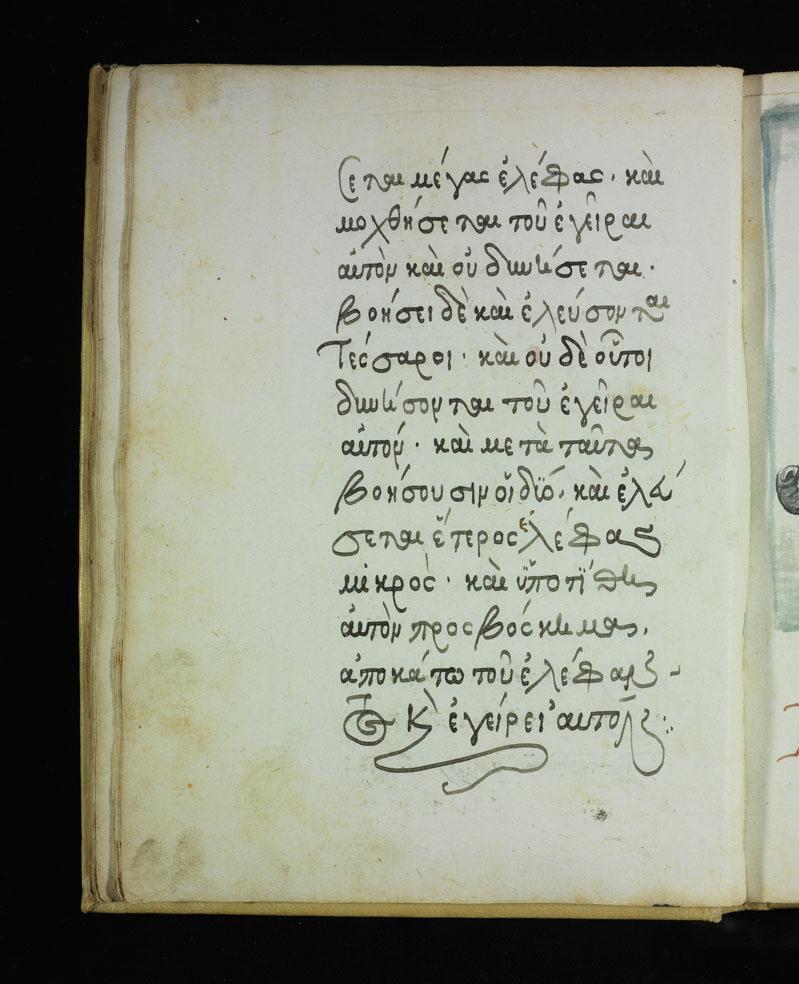 σεται μέγας ἐλέφας· καὶ
μοχθήσεται τοῦ ἐγεῖραι
αὐτὸν καὶ οὐ δυνήσεται·
βοήσει δὲ καὶ ἐλεύσονται
τέσσαροι· καὶ οὐ δὲ οὗτοι
δυνήσονται τοῦ ἐγεῖραι
αὐτόν· καὶ μετὰ ταῦτα
βοήσουσιν οἱ δϊό· καὶ ἐλεύ
σεται ἕτερος ἐλέφας
μικρός· καὶ ὑποτϊθεῖς
αὐτὸν προςβόσκημας,
ἀποκάτω τοῦ ἐλέφαν
κὶ ἐγείρει αὐτόν: